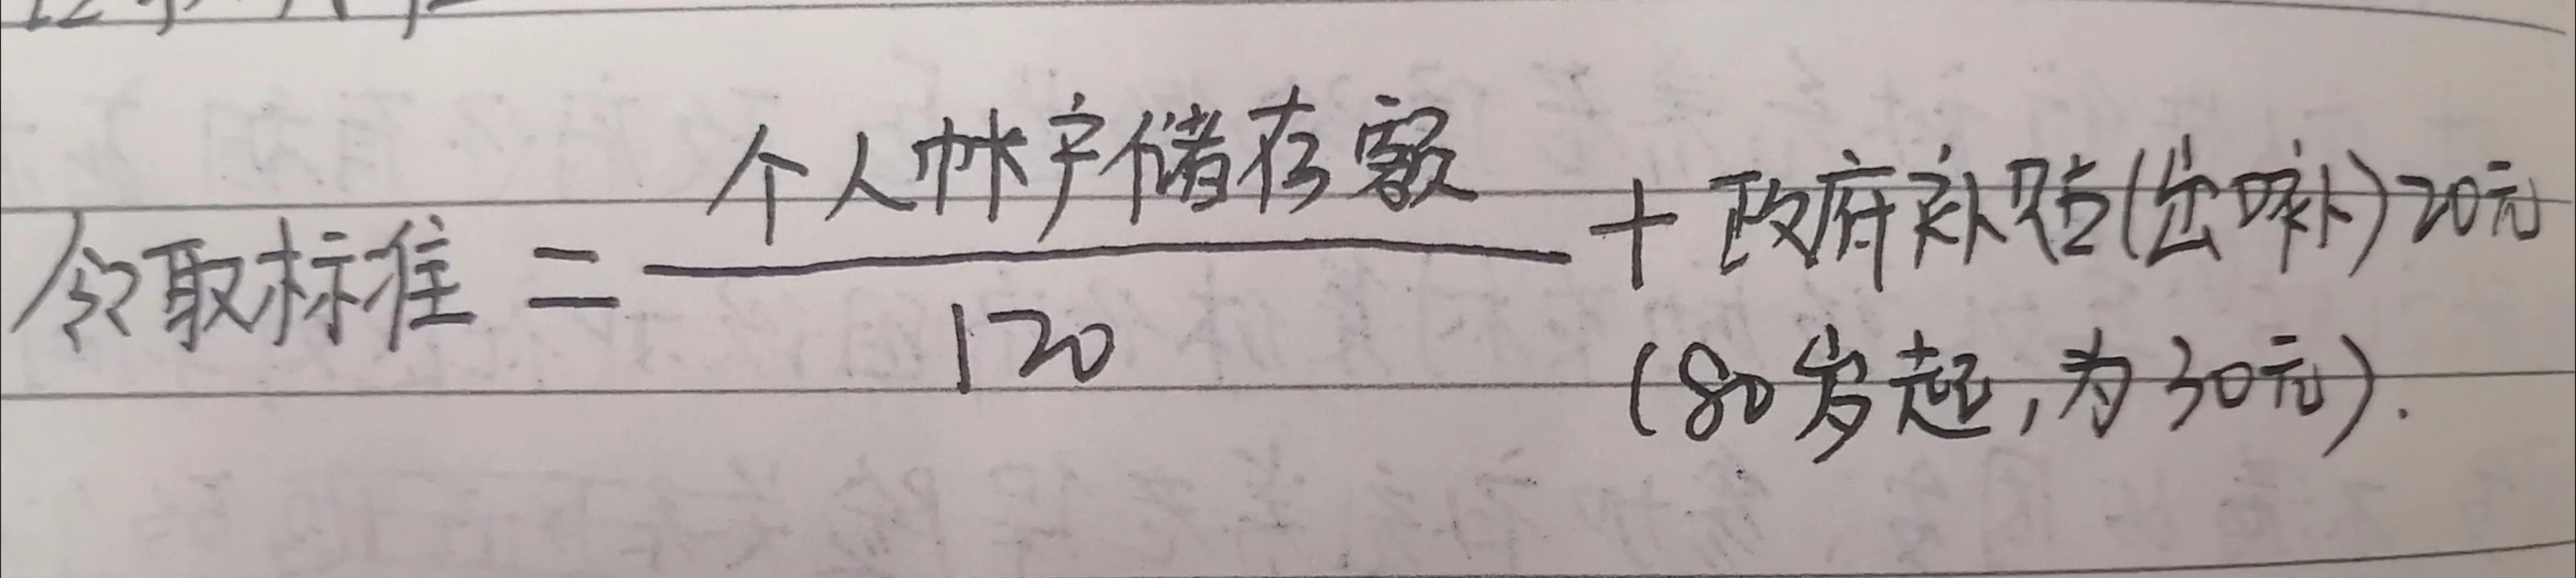 领取标准 = 个人帐户储存额 / 120 + 政府补贴(出口补)20元
(80岁起,为30元).